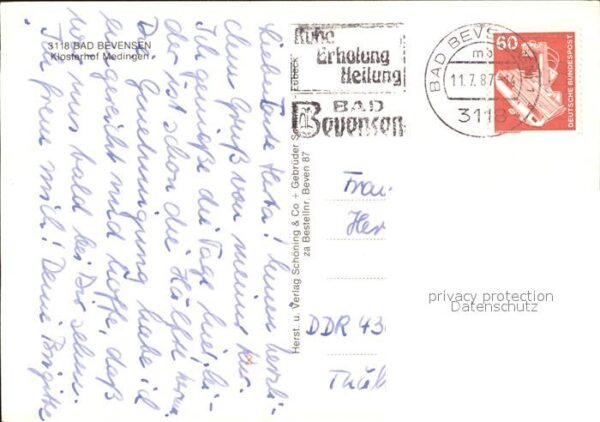 3118 BAD BEVENSEN
Klosterhof Medingen
Liebe Herta! Einen herzli-
chen Gruß von meiner Kur.
Ich genieße die Tage hier, lei-
der ist schon die Hälfte herum.
Die Genehmigung habe ich
eingereicht und hoffe, daß
wir uns bald bei Dir sehen.
Ich freue mich! Deine Brigitte
Herst. u. Verlag Schöning & Co + Gebrüder
za Bestellnr. Beven 87
LÜBECK
Ruhe
Erholung
Heilung
BAD
Bevensen
BAD BEVENSEN
11.7.87
3118
60
DEUTSCHE BUNDESPOST
Frau
Her
DDR 430
privacy protection
Datenschutz